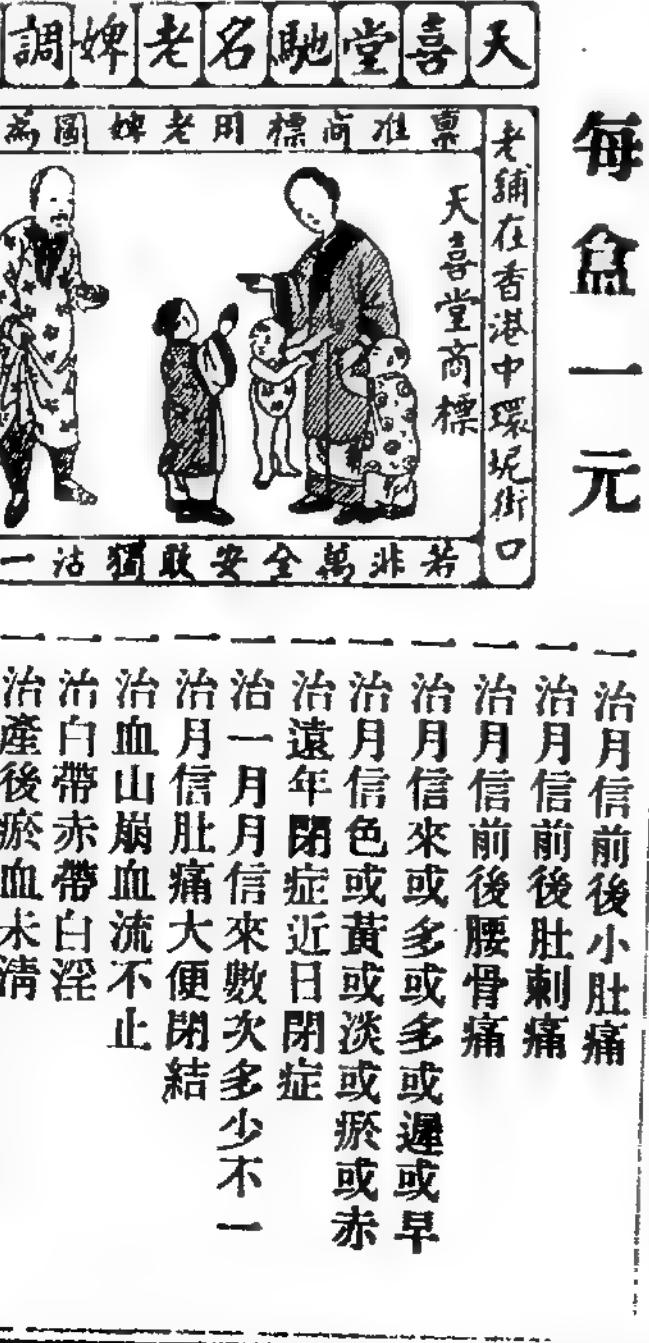 每盒一元
天喜堂馳名老婢調
老舖在香港中環坭街口
稟准商標用老婢圖為
天喜堂商標
若非萬全安敢獨沽一
一治月信前後小肚痛
一治月信前後肚刺痛
一治月信前後腰骨痛
一治月信來或多或多或遲或早
一治月信色或黃或淡或瘀或赤
一治遠年閉症近日閉症
一治一月月信來數次多少不一
一治月信肚痛大便閉結
一治血山崩血流不止
一治白帶赤帶白淫
一治產後瘀血未清